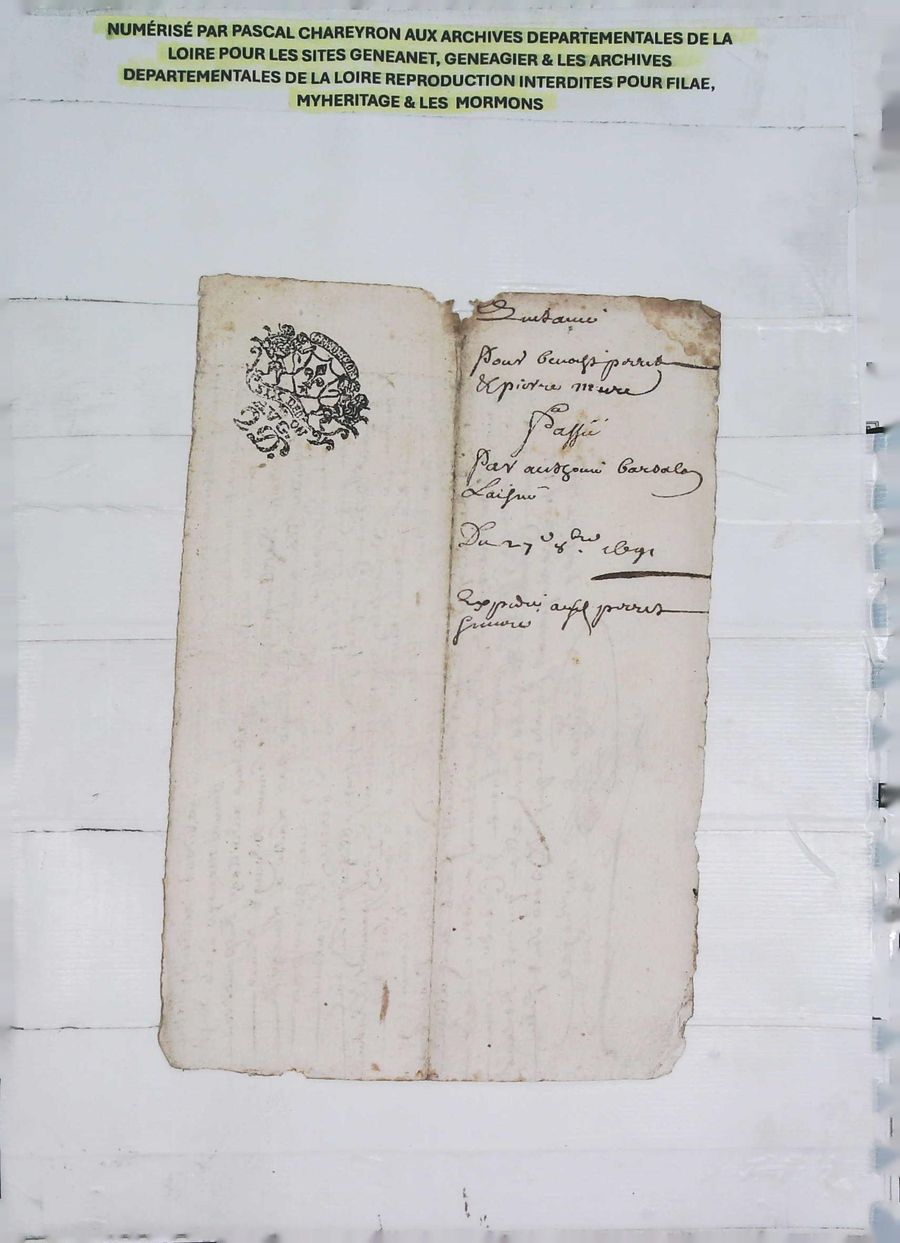 NUMÉRISÉ PAR PASCAL CHAREYRON AUX ARCHIVES DEPARTEMENTALES DE LA
LOIRE POUR LES SITES GENEANET, GENEAGIER & LES ARCHIVES
DEPARTEMENTALES DE LA LOIRE REPRODUCTION INTERDITES POUR FILAE,
MYHERITAGE & LES MORMONS
Pour benoist perret
& pierre mure
Passé
Par anthoine bardale
Laisné
Du 27e 8bre 1691
Expedié aud perret